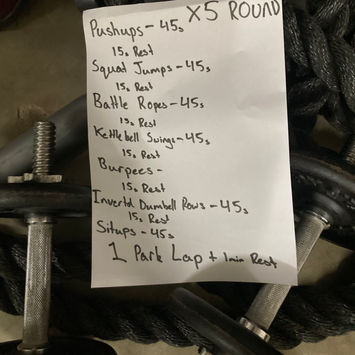 Pushups - 45s X5 ROUND
15s Rest
Squad Jumps - 45s
15s Rest
Battle Ropes - 45s
15s Rest
Kettlebell Swings - 45s
15s Rest
Burpees -
15s Rest
Invertd Dumbell Rows - 45s
15s Rest
Situps - 45s
1 Park Lap + 1min Rest